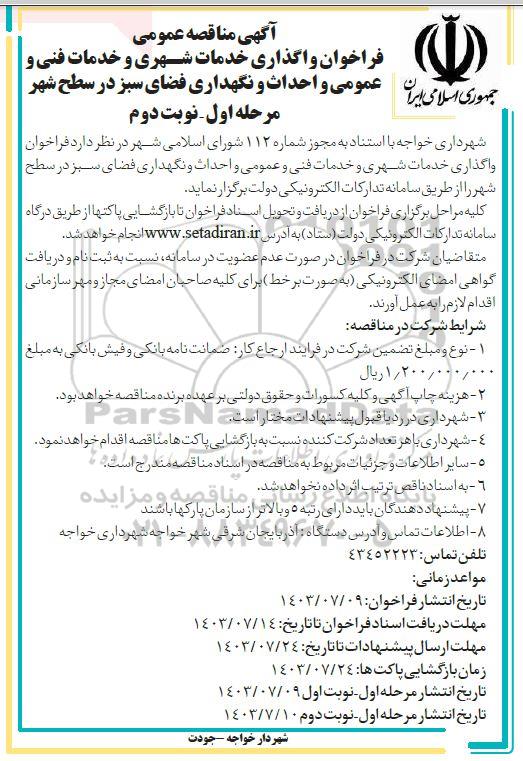 آگهی مناقصه عمومی
فراخوان واگذاری خدمات شهری و خدمات فنی و
عمومی و احداث و نگهداری فضای سبز در سطح شهر
مرحله اول - نوبت دوم
جمهوری اسلامی ایران
شهرداری خواجه با استناد به مجوز شماره ۱۱۲ شورای اسلامی شهر در نظر دارد فراخوان
واگذاری خدمات شهری و خدمات فنی و عمومی و احداث و نگهداری فضای سبز در سطح
شهر را از طریق سامانه تدارکات الکترونیکی دولت برگزار نماید.
کلیه مراحل برگزاری فراخوان از دریافت و تحویل اسناد فراخوان تا بازگشایی پاکتها از طریق درگاه
سامانه تدارکات الکترونیکی دولت (ستاد) به آدرس www.setadiran.ir انجام خواهد شد.
متقاضیان شرکت در فراخوان در صورت عدم عضویت در سامانه، نسبت به ثبت نام و دریافت
گواهی امضای الکترونیکی (به صورت برخط) برای کلیه صاحبان امضای مجاز و مهر سازمانی
اقدام لازم را به عمل آورند.
شرایط شرکت در مناقصه:
۱- نوع و مبلغ تضمین شرکت در فرایند ارجاع کار: ضمانت نامه بانکی و فیش بانکی به مبلغ
۱/۲۰۰/۰۰۰/۰۰۰ ریال
۲- هزینه چاپ آگهی و کلیه کسورات و حقوق دولتی بر عهده برنده مناقصه خواهد بود.
۳- شهرداری در رد یا قبول پیشنهادات مختار است.
۴- شهرداری با هر تعداد شرکت کننده نسبت به بازگشایی پاکت ها مناقصه اقدام خواهد نمود.
۵- سایر اطلاعات و جزئیات مربوط به مناقصه در اسناد مناقصه مندرج است.
۶- به اسناد ناقص ترتیب اثر داده نخواهد شد.
۷- پیشنهاد دهندگان باید دارای رتبه ۵ و بالاتر از سازمان پارکها باشند
۸- اطلاعات تماس و آدرس دستگاه: آذربایجان شرقی شهر خواجه شهرداری خواجه
تلفن تماس: ۴۳۴۵۲۲۲۳
مواعد زمانی:
تاریخ انتشار فراخوان: ۱۴۰۳/۰۷/۰۹
مهلت دریافت اسناد فراخوان تا تاریخ: ۱۴۰۳/۰۷/۱۴
مهلت ارسال پیشنهادات تا تاریخ: ۱۴۰۳/۰۷/۲۴
زمان بازگشایی پاکت ها: ۱۴۰۳/۰۷/۲۴
تاریخ انتشار مرحله اول - نوبت اول ۱۴۰۳/۰۷/۰۹
تاریخ انتشار مرحله اول - نوبت دوم ۱۴۰۳/۷/۱۰
شهردار خواجه - جودت